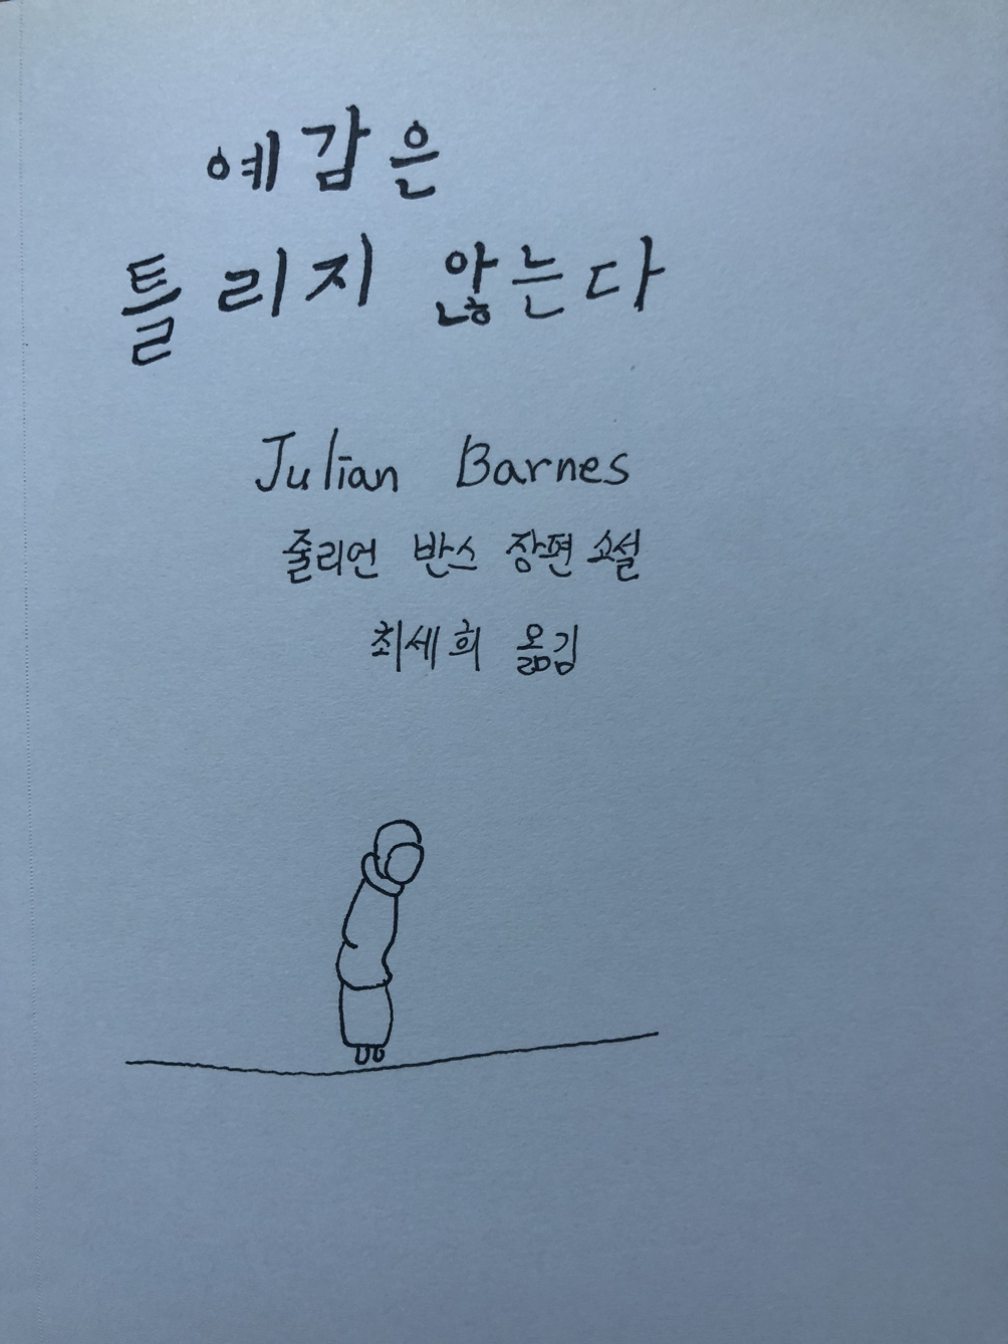 예감은
틀리지 않는다
Julian Barnes
줄리언 반스 장편 소설
최세희 옮김